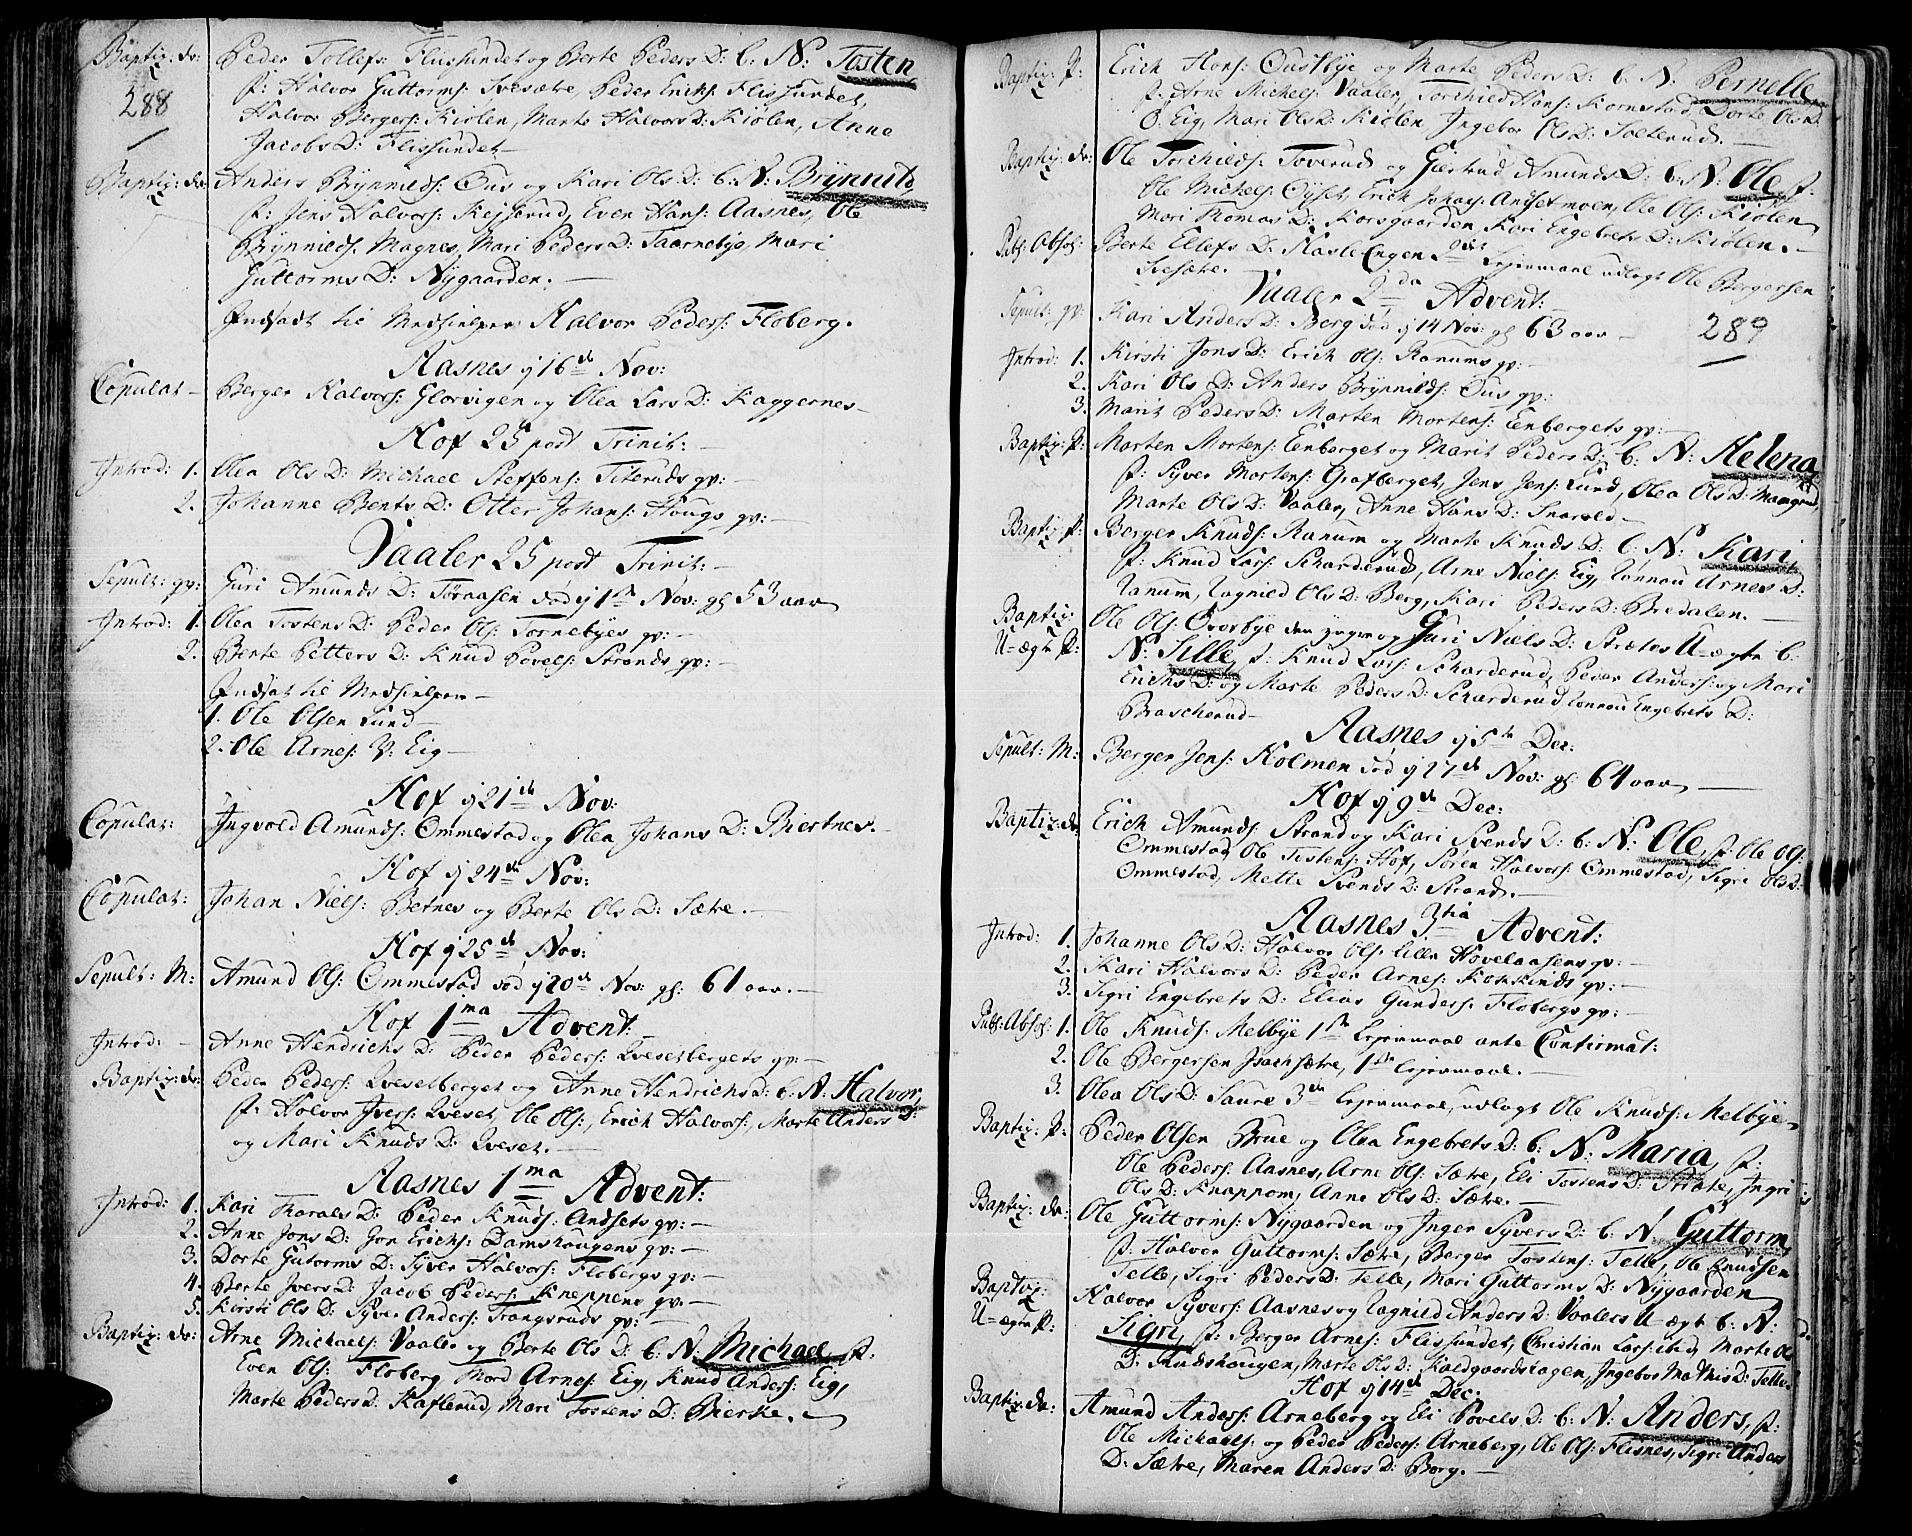 Baptiz: dr: Peder Tollefs: Flissundet og Berte Peders D: b: N: Tosten
288
f: Halvor Guttorms: Svesætre, Peder Erichs: Flissundet,
Halvor Bergers: Kiølen, Marte Halvors D: Kiølen, Anne
Jacobs D: Flissundet.
Baptiz: dr: Anders Brÿnnilds: Ous og Kari Ols D: b: N: Brÿnnild
f: Jens Halvors: Kejserud, Even Hans: Aasnes, Ole
Brÿnnilds: Magnes, Mari Peders D: Taarnebÿe, Mari
Guttorms D: Nÿgaarden.
Indsadt til Medhielper Halvor Peders: Floberg.
Aasnes ɉ 16de Nov:
Copulat – Berger Halvors: Glorvigen og Olea Lars D: Kaggernes –
Hof 25 post Trinit: –
Introd: 1. Olea Ols D: Michael Steffens: Titeruds qv: –
2. Johanne Bents D: Otter Johans: Hougs qv: –
Vaaler 25 post Trinit: –
Sepult: qv: Guri Amunds D: Toraasen død ɉ 1ste Nov: gl 53 aar
Introd: 1. Olea Tostens D: Peder Ols: Tornebÿes qv: –
2. Berte Petters D: Knud Povels: Strands qv: –
Indsat til Medhielpere –
1. Ole Olsen Lund –
2. Ole Arnes: Eig –
Hof ɉ 21de Nov:
Copulat: Ingvold Amunds: Ommestad og Olea Johans D: Biertnes. –
Hof ɉ 24de Nov:
Copulat: Johan Niels: Bernes og Berte Ols D: Sætre. –
Hof ɉ 25de Nov:
Sepult: M: Amund Ols: Ommestad død ɉ 20de Nov: gl: 61 aar. –
Hof 1ma Advent:
Introd: – Anne Hendrichs D: Peder Peders: Qvesetbergets qv: –
Baptiz: dr: Peder Peders: Qvesetberget og Anne Hendrichs D: b: N: Halvor,
f: Halvor Ivers: Qveset, Ole Ols:, Erich Halvors:, Marte Anders D:
og Mari Knuds D: Qveset. –
Aasnes 1ma Advent:
Introd: 1. Kari Haralds D: Peder Knuds: Andsets qv: –
2. Anne Jons D: Jon Erichs: Damshaugens qv: –
3. Dorte Gutorms D: Sÿver Halvors: Flobergs qv: –
4. Berte Ivers D: Jacob Peders: Kneppens qv: –
5. Kirsti Ols D: Sÿver Anders: Trangsruds qv: –
Baptiz: dr: Arne Michaels: Vaaler og Berte Ols D: b: N: Michael, f:
Even Ols: Floberg, Mord Arnes: Eig, Knud Anders: Eig,
Marte Peders D: Kaflerud, Mari Tostens D: Bierke. –
Baptiz: P: Erich Hans: Oustbÿe og Marte Peders D: b: N: Pernelle
f: Arne Michels: Vaaler, Torchild Hans: Kornstad, Dorte Ols D:
Ø. Eig, Mari Ols D: Kiølen, Ingebor Ols D: Sæterud. –
Baptiz: dr: Ole Torchilds: Toverud og Giertrud Amunds D: b: N: Ole, f:
Ole Michels: Oÿset, Erich Johans: Andsetmoen, Ole Ols: Kiølen
Mari Thomas D: Korsgaarden, Kari Engebrets D: Kiølen. –
Publ: Absol: Berte Ellefs D: HasleEngen 2det Lejermaal udlagt Ole Bergersen
Svesætre.
Vaaler 2da Advent:
Sepult: qv: Kari Anders D: Berg død ɉ 14 Nov: gl 63 aar –
289
Introd: 1. Kirsti Jons D: Erich Ols: Ranums qv:
2. Kari Ols D: Anders Brÿnnilds: Ous qv:
3. Marit Peders D: Morten Mortens: Eenbergets qv: –
Baptiz: P: Morten Mortens: Eenberget og Marit Peders D: b: N: Helena
f: Sÿver Mortens: Grafberget, Jens Jens: Lund, Olea Ols D: Maagerud
Marte Ols D: Vaaler, Anne Hans D: Snarold –
Baptiz: P: Berger Knuds: Ranum og Marte Knuds D: b: N: Kari,
f: Knud Lars: Skarderud, Arne Niels: Eig, Rønnou Arnes D:
Ranum, Ragnild Ols D: Berg, Kari Peders D: Bredalen. –
Baptiz: Ole Ols: Overbÿe den ÿngre og Guri Niels D: Strætes U=ægte b:
U=ægte P: N: Sille, f: Knud Lars: Skarderud, Peder Anders: og Mari
Erichs D: og Marte Peders D: Skarderud Rønnou Engebrets D:
Brascherud –
Aasnes ɉ 5te Dec:
Sepult: M: Berger Jens: Holmen død ɉ 27de Nov: gl: 64 aar –
Hof ɉ 9de Dec:
Baptiz: dr: Erich Amunds: Strand og Kari Svends D: b: N: Ole, f: Ole Ols:
Ommestad, Ole Tostens: Hof, Søren Halvors: Ommestad, Sigri Ols D:
Ommestad, Mette Svends D: Strand. –
Aasnes 3tia Advent:
Introd: 1. Johanne Ols D: Halvor Ols: lille Hovelaasens qv: –
2. Kari Halvors D: Peder Arnes: Kolkinds qv: –
3. Sigri Engebrets D: Elias Gunders: Flobergs qv: –
Publ: Absol: 1. Ole Knuds: Melbÿe 1ste Lejermaal ante Confirmat:
2. Ole Bergersen Isachsætre, 1ste Lejermaal. –
3. Olea Ols D: Saure 3die Lejermaal, udlagt Ole Knuds: Melbÿe –
Baptiz: P: Peder Olsen Brue og Olea Engebrets D: b: N: Maria, f:
Ole Peders: Aasnes, Arne Ols: Sætre, Eli Tostens D: Stræte, Ingri
Ols D: Knappom, Anne Ols D: Sætre. –
Baptiz: dr: Ole Guttorms: Nÿgaarden og Inger Sÿvers D: b: N. Guttorm,
f: Halvor Guttorms: Sætre, Berger Tostens: Telle, Ole Knudsen
Telle, Sigri Peders D: Telle, Mari Guttorms D: Nÿgaarden
Baptiz: Halvor Sÿvers: Aasnes og Ragnild Anders D: Vaalers U=ægte b: N:
U=ægte P: Sigri, f: Berger Arnes: Flissundet, Christian Lars: ibid, Marte Ols
D: Kudshaugen, Marte Ols D: Kaldgaardshagen, Ingebor Mathis D: Telle
Hof ɉ 14de Dec:
Baptiz: dr: Amund Anders: Arneberg og Eli Povels D: b: N: Anders, f:
Ole Michaels: og Peder Peders: Arneberg, Ole Ols: Flisnes, Sigri Anders
D: Sætre, Maren Anders D: Borg. –